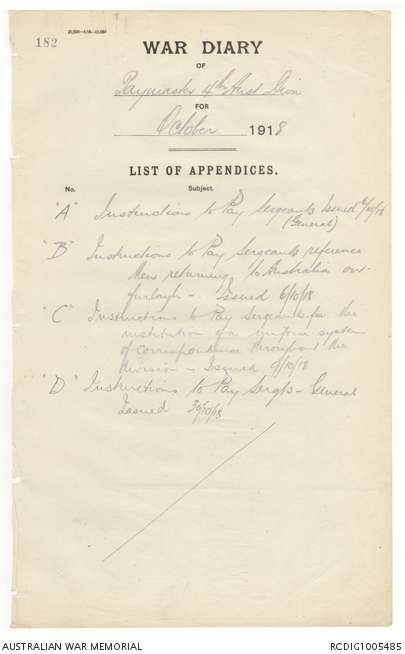 182
WAR DIARY
OF
Paymaster 4th Aust Divn
FOR
October 1918
LIST OF APPENDICES.
No. Subject.
"A" Instructions to Pay Sergeants Issued
(General)
"B" Instructions to Pay Sergeants reference
Men returning to Australia on
furlough - Issued 6/10/18
"C" Instructions to Pay Sergeants for the
institution of a uniform system
of correspondence throughout the
Division - Issued 9/10/18
"D" Instructions to Pay Sergts - General
Issued 30/10/18
AUSTRALIAN WAR MEMORIAL
RCDIG1005485